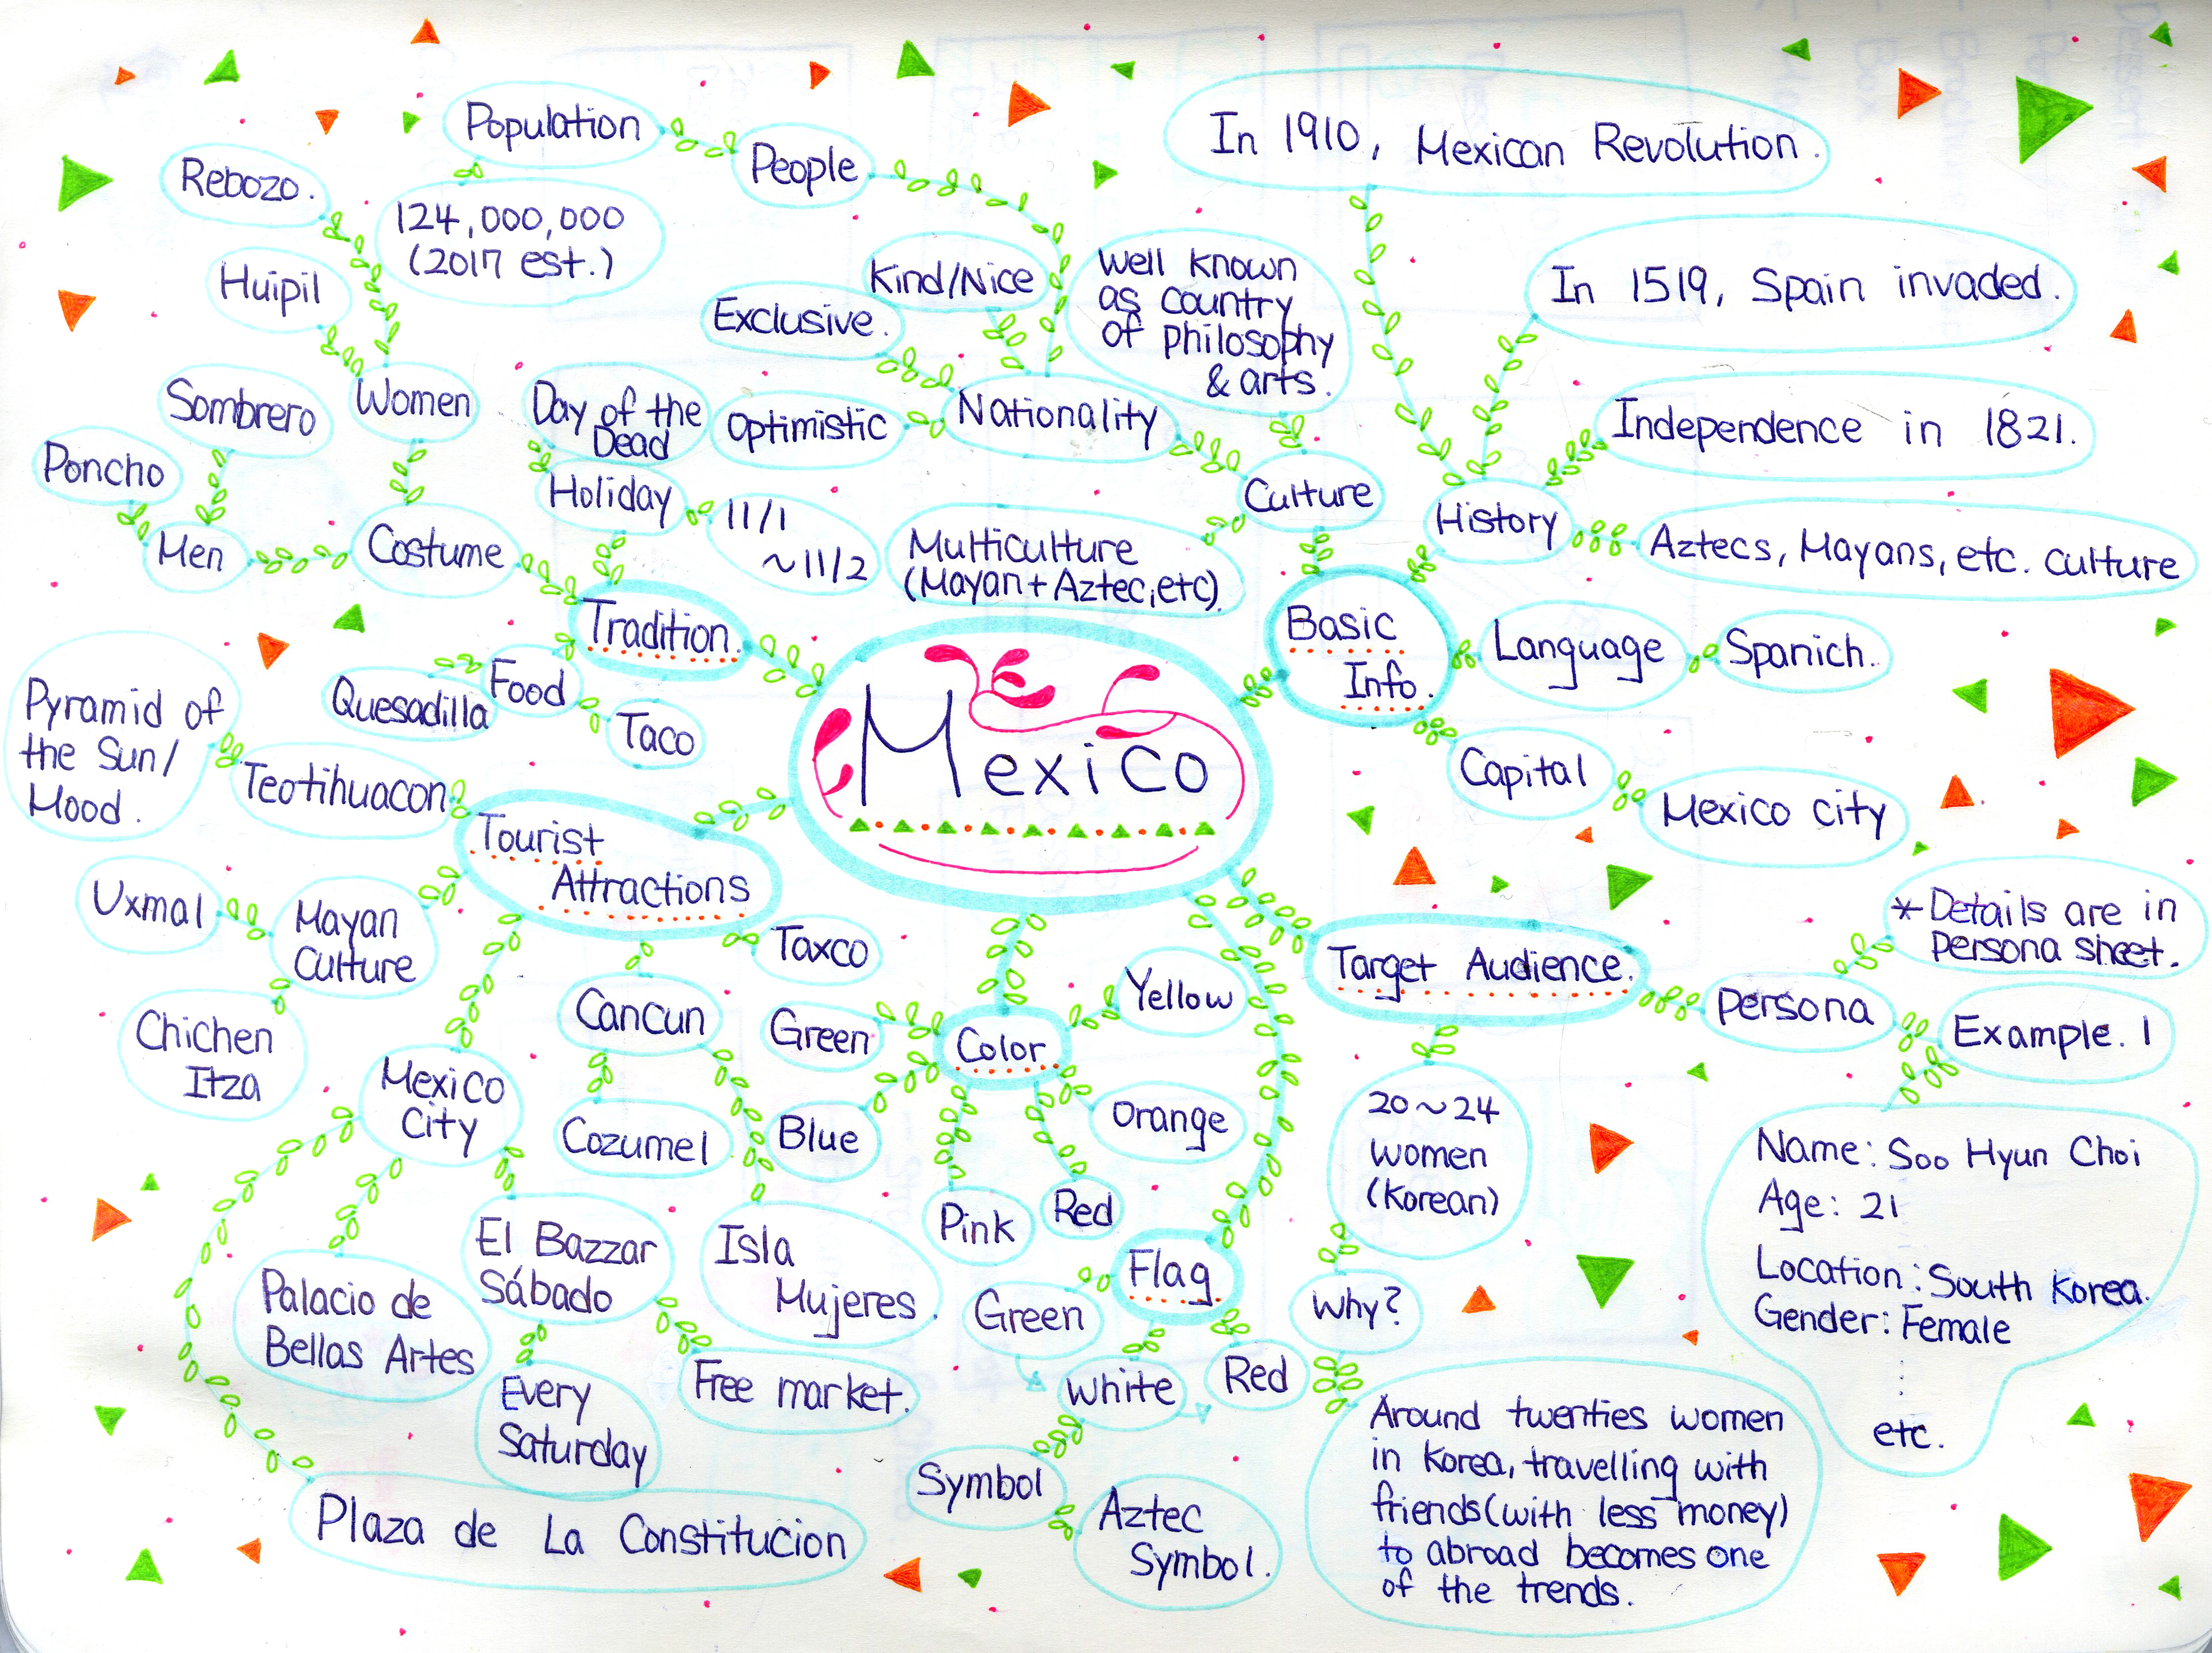 Mexico
Basic
Info.
Culture
Well known
as country
of philosophy
& arts.
Multiculture
(Mayan + Aztec, etc).
Nationality
Kind/Nice
Exclusive.
Optimistic
People
Population
124,000,000
(2017 est.)
History
In 1910, Mexican Revolution.
In 1519, Spain invaded.
Independence in 1821.
Aztecs, Mayans, etc. culture
Language
Spanich.
Capital
Mexico city
Target Audience.
Persona
* Details are in
persona sheet.
Example. 1
Name: Soo Hyun Choi
Age: 21
Location: South Korea.
Gender: Female
etc.
20~24
women
(Korean)
Why?
Around twenties women
in Korea, travelling with
friends (with less money)
to abroad becomes one
of the trends.
Flag
Green
White
Red
Symbol
Aztec
Symbol.
Color
Yellow
Orange
Red
Pink
Blue
Green
Tourist
Attractions
Taxco
Cancun
Cozumel
Isla
Mujeres.
Mexico
City
El Bazzar
Sábado
Every
Saturday
Free market.
Palacio de
Bellas Artes
Plaza de La Constitucion
Mayan
Culture
Uxmal
Chichen
Itza
Teotihuacon
Pyramid of
the Sun/
Mood.
Tradition
Food
Quesadilla
Taco
Holiday
Day of the
Dead
11/1
~11/2
Costume
Women
Rebozo.
Huipil
Men
Sombrero
Poncho